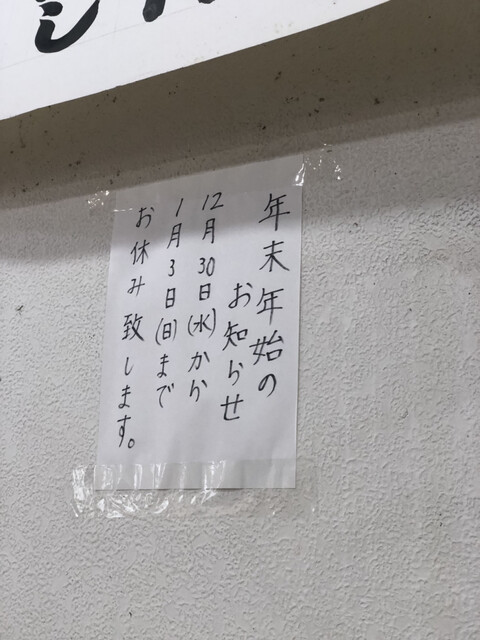 年末年始の
お知らせ
12月30日(水)から
1月3日(日)まで
お休み致します。